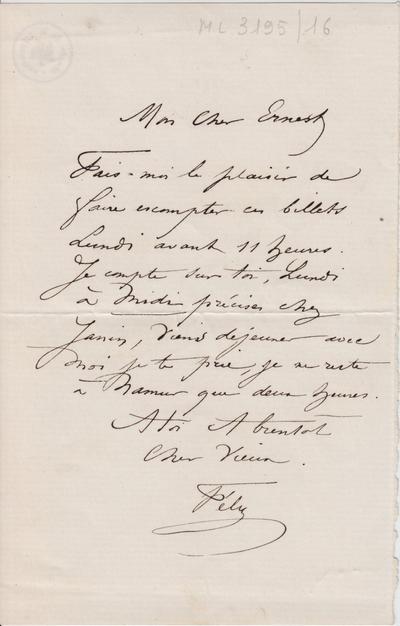 ML 3195/16
Mon Cher Ernest
Fais-moi le plaisir de
faire escompter ces billets
Lundi avant 11 heures.
Je compte sur toi, Lundi
à Midi précises chez
Janin, viens déjeuner avec
moi je te prie, je ne reste
à Namur que deux heures.
A toi A bientôt
Cher Vieux.
Fély